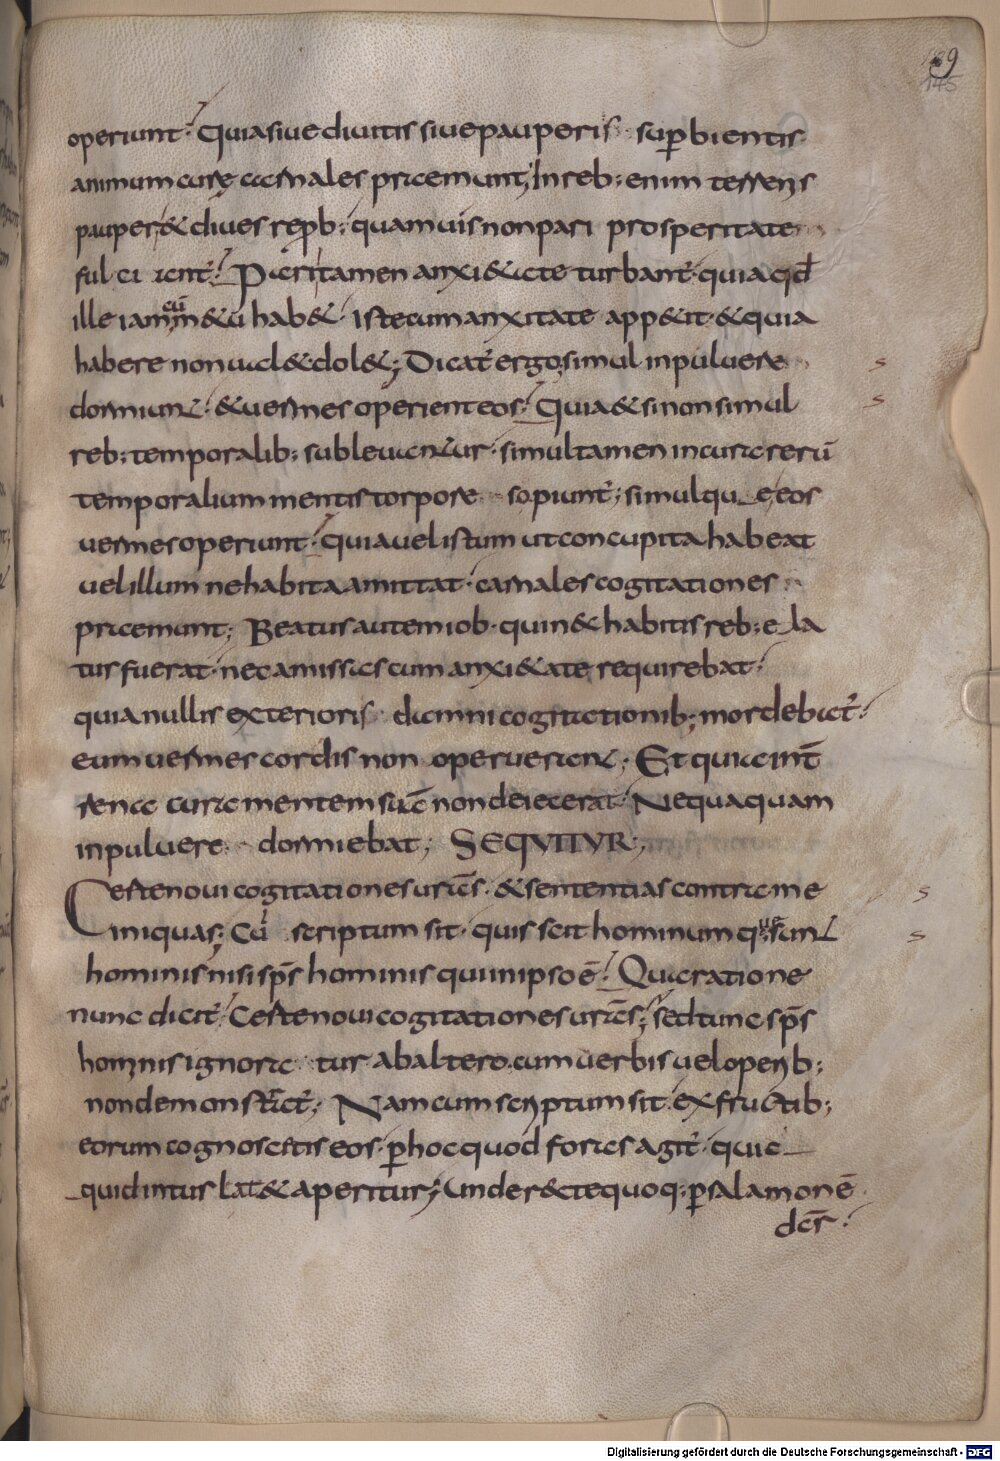 139
145
operiunt. Quia siue diuitis siue pauperis superbientis
animum curę carnales premunt; In reb: enim terrenis
pauper & diues reprob: quamuis non pari prosperitate
fulciantr̄. Pari tamen anxi&ate turbant̄. quia qd̄
ille iam cū m&u hab&. iste cum anxi&ate app&it. & quia
habere non ual& dol&; Dicat̄ ergo, simul in puluere
dormiunt. & uermes operient eos. Quia & si non simul
reb: temporalib: subleuantur. simul tamen in cura rerū
temporalium mentis torpore sopiunt̄; simulque eos
uermes operiunt. quia uel istum ut concupita habeat
uel illum ne habita amittat. carnales cogitationes
premunt; Beatus autem iob. qui n& habitis reb: ela
tus fuerat. nec amissas cum anxi&ate requirebat.
quia nullis exterioris damni cogitationib; mordebat̄.
eum uermes cordis non operuerant; Et quia in tr̄
rena cura mentem suā non deiecerat. Nequaquam
in puluere dormiebat; SEQVITVR;
Certe noui cogitationes uras̄. & sententias contra me
iniquas; Cū scriptum sit. quis scit hominum quę sunt
hominis nisi sp̄s hominis qui in ipso ē. Qua ratione
nunc dicit̄. Certe noui cogitationes uras̄; sed tunc sp̄s
hominis ignora tur ab altero. cum uerbis uel operib;
non demonstrat̄; Nam cum scriptum sit. ex fructib;
eorum cognoscetis eos. p̄ hoc quod foras agit̄. quic
quid intus lat& aperitur; Unde r&cte quoq: p̄ salamonē
dcr̄.
Digitalisierung gefördert durch die Deutsche Forschungsgemeinschaft - DFG